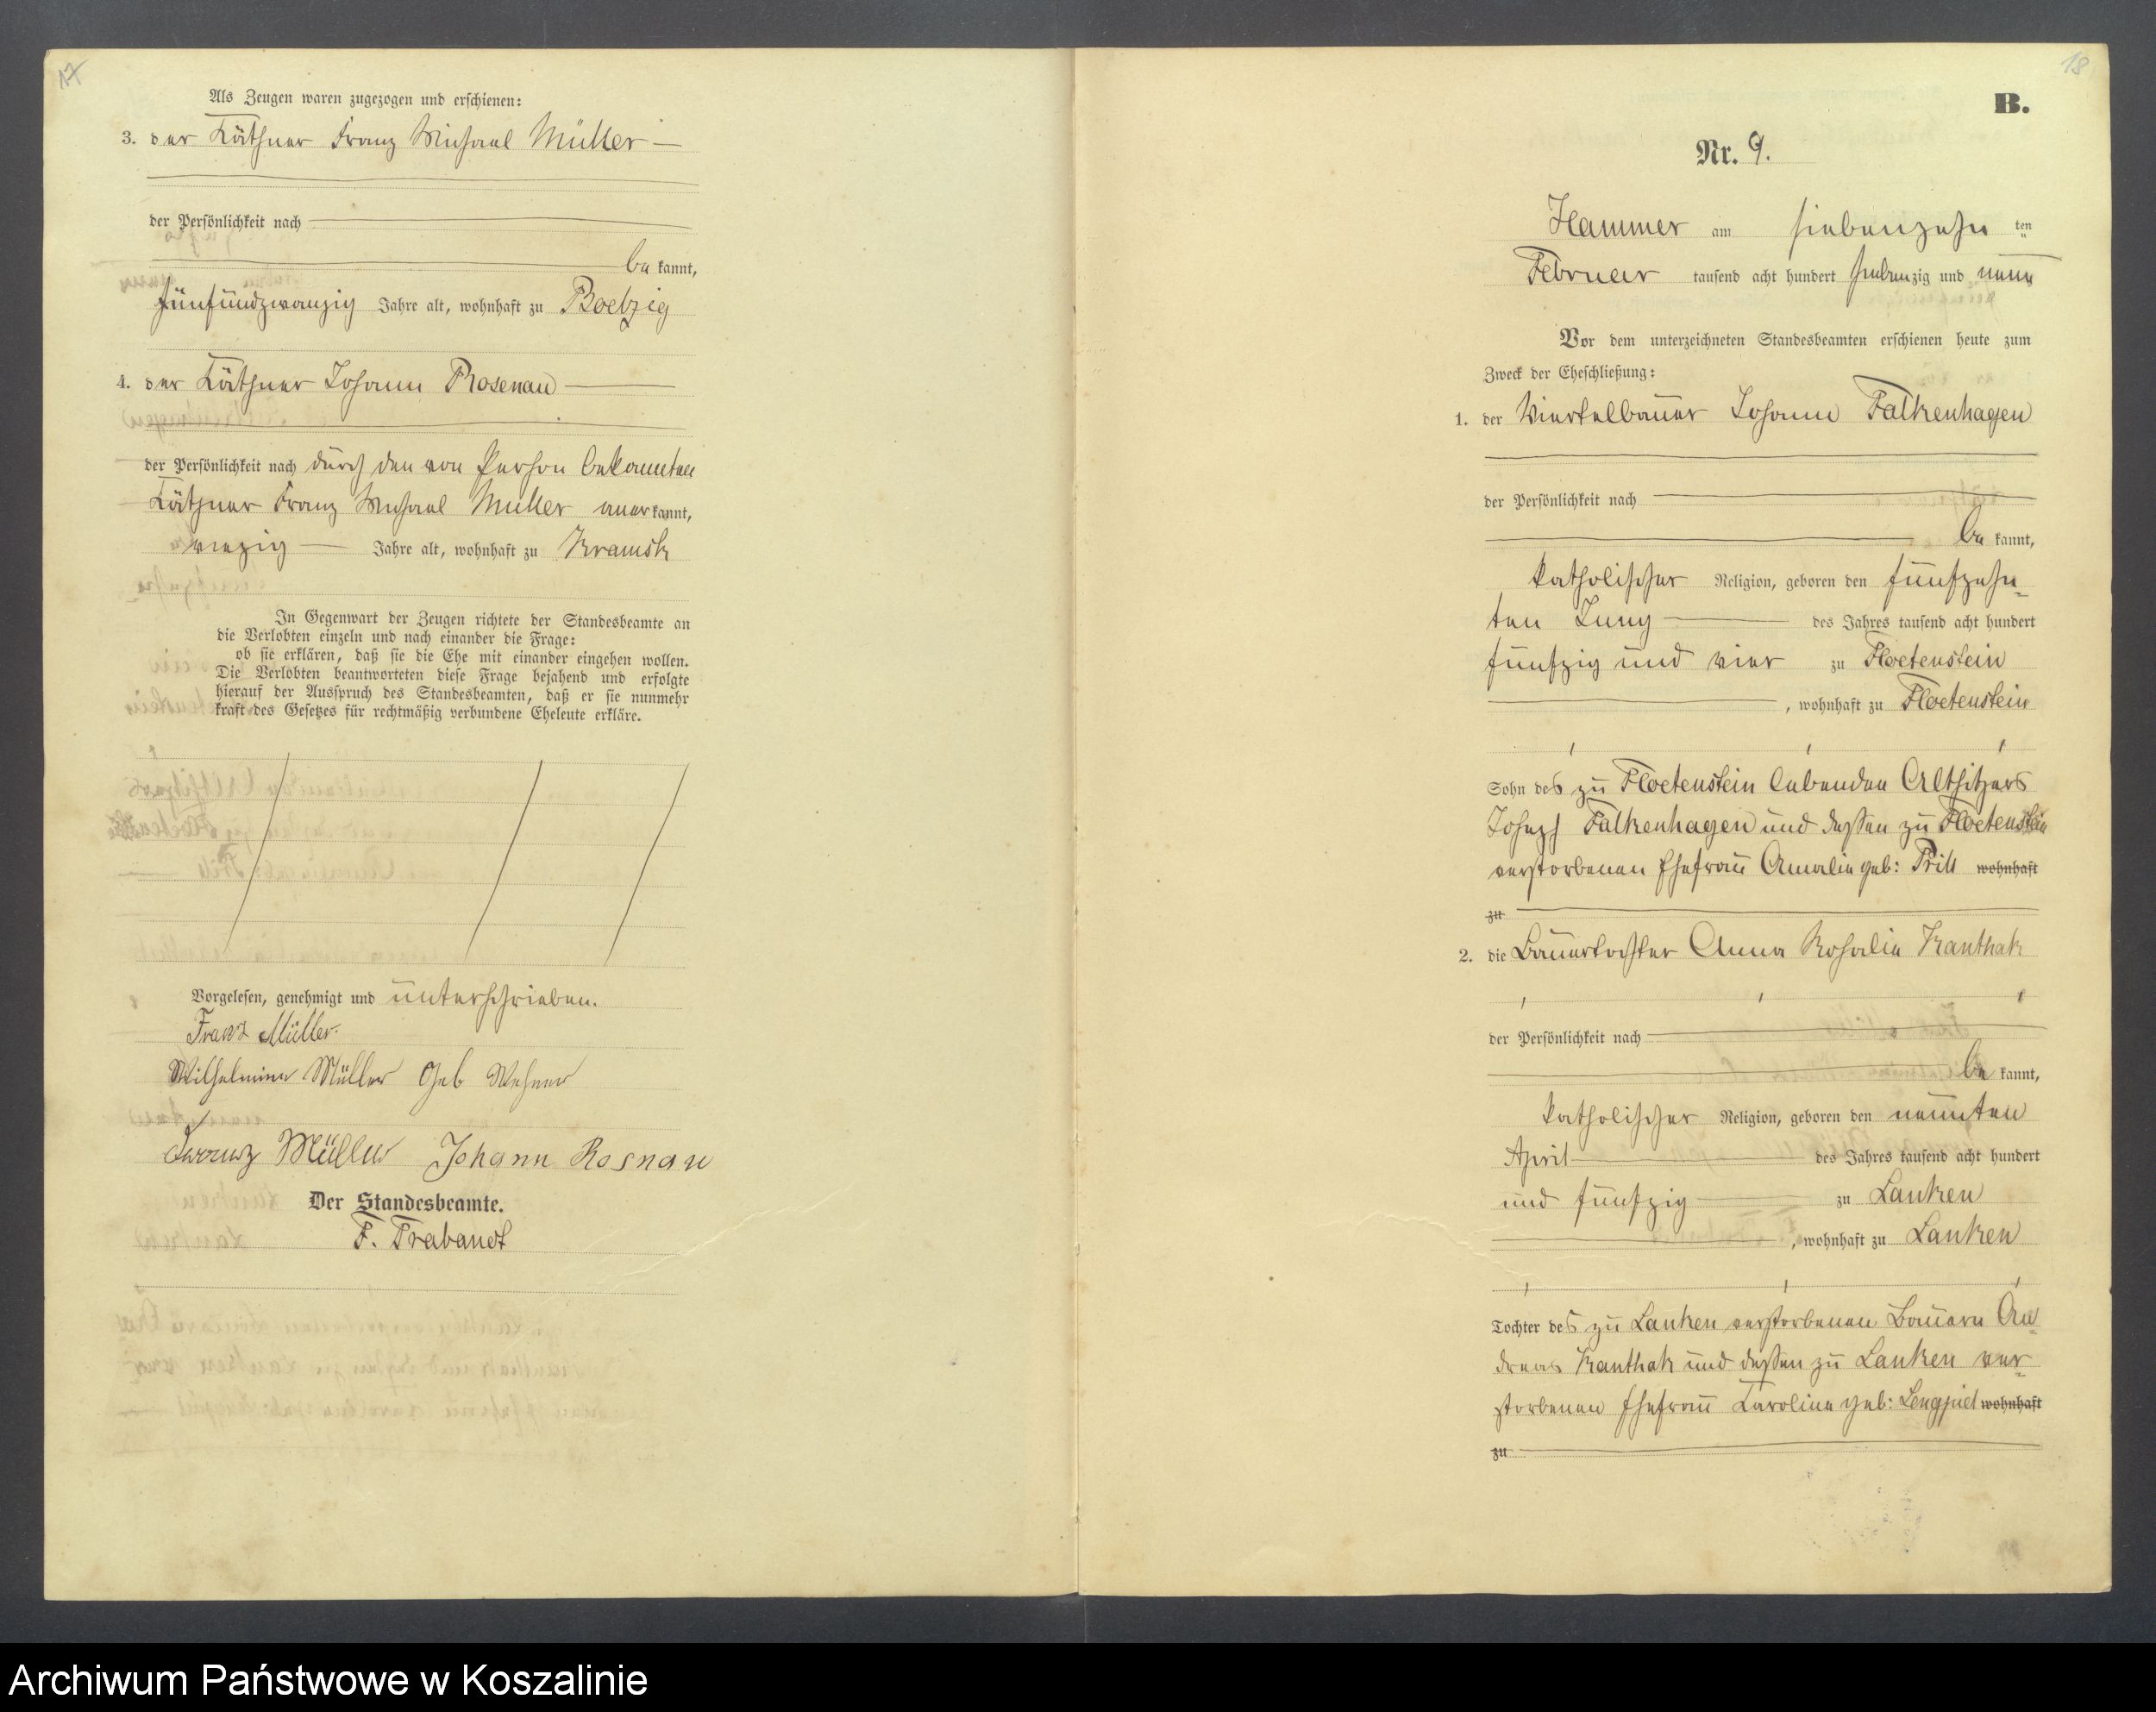 17
Als Zeugen waren zugezogen und erschienen:
3. der Käthner Franz Michael Müller
der Persönlichkeit nach
bekannt,
fünfundzwanzig Jahre alt, wohnhaft zu Boelzig
4. der Käthner Johann Rosenau
der Persönlichkeit nach durch den von Person bekannten
Käthner Franz Michael Müller anerkannt,
vierzig Jahre alt, wohnhaft zu Kramsk
In Gegenwart der Zeugen richtete der Standesbeamte an
die Verlobten einzeln und nach einander die Frage:
ob sie erklären, daß sie die Ehe mit einander eingehen wollen.
Die Verlobten beantworteten diese Frage bejahend und erfolgte
hierauf der Ausspruch des Standesbeamten, daß er sie nunmehr
kraft des Gesetzes für rechtmäßig verbundene Eheleute erkläre.
Vorgelesen, genehmigt und unterschrieben.
Franz Müller.
Wilhelmine Müller Geb Wehner
Franz Müller Johann Rosnau
Der Standesbeamte.
F. Trabandt
18
B.
Nr. 9.
Hammer am siebenzehn ten
Februar tausend acht hundert siebenzig und neun
Vor dem unterzeichneten Standesbeamten erschienen heute zum
Zweck der Eheschließung:
1. der Viertelbauer Johann Falkenhagen
der Persönlichkeit nach
bekannt,
katholischer Religion, geboren den fünfzehn-
ten Juny des Jahres tausend acht hundert
fünfzig und vier zu Floetenstein
, wohnhaft zu Floetenstein
Sohn des zu Floetenstein lebenden Altsitzers
Joseph Falkenhagen und dessen zu Floetenstein
verstorbenen Ehefrau Amalie geb: Prill wohnhaft
zu
2. die Bauertochter Anna Rosalie Kanthak
der Persönlichkeit nach
bekannt,
katholischer Religion, geboren den neunten
April des Jahres tausend acht hundert
und fünfzig zu Lanken
, wohnhaft zu Lanken
Tochter des zu Lanken verstorbenen Bauern An-
dreas Kanthak und dessen zu Lanken ver-
storbenen Ehefrau Karoline geb: Lengpiel wohnhaft
zu
Archiwum Państwowe w Koszalinie